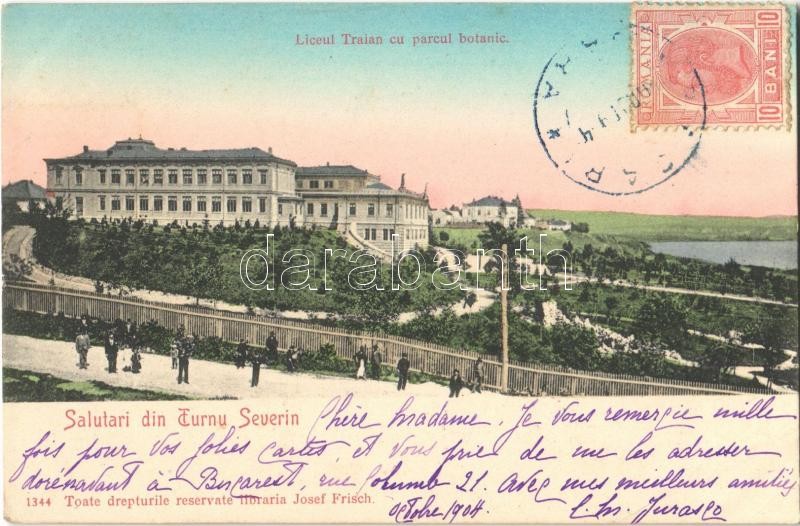 Liceul Traian cu parcul botanic.
ROMANIA
10 BANI 10
darabanth
Salutari din Turnu Severin
Chère Madame. Je vous remercie mille
fois pour vos jolies cartes, et vous prie de me les adresser
dorénavant à Bucarest, rue Columb 21. Avec mes meilleurs amitiés
Octobre 1904
1344 Toate drepturile reservate libraria Josef Frisch.